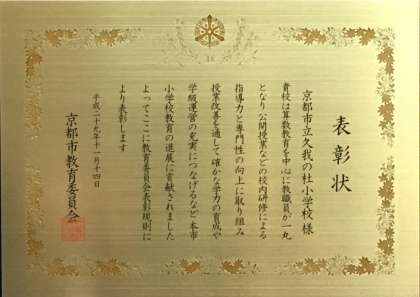 表彰状
京都市立久我の杜小学校様
貴校は算数教育を中心に教職員が一丸
となり公開授業などの校内研修による
指導力と専門性の向上に取り組み
授業改善を通して確かな学力の育成や
学級運営の充実につなげるなど本市
小学校教育の進展に貢献されました
よってここに教育委員会表彰規則に
より表彰します
平成二十九年十一月十四日
京都市教育委員会